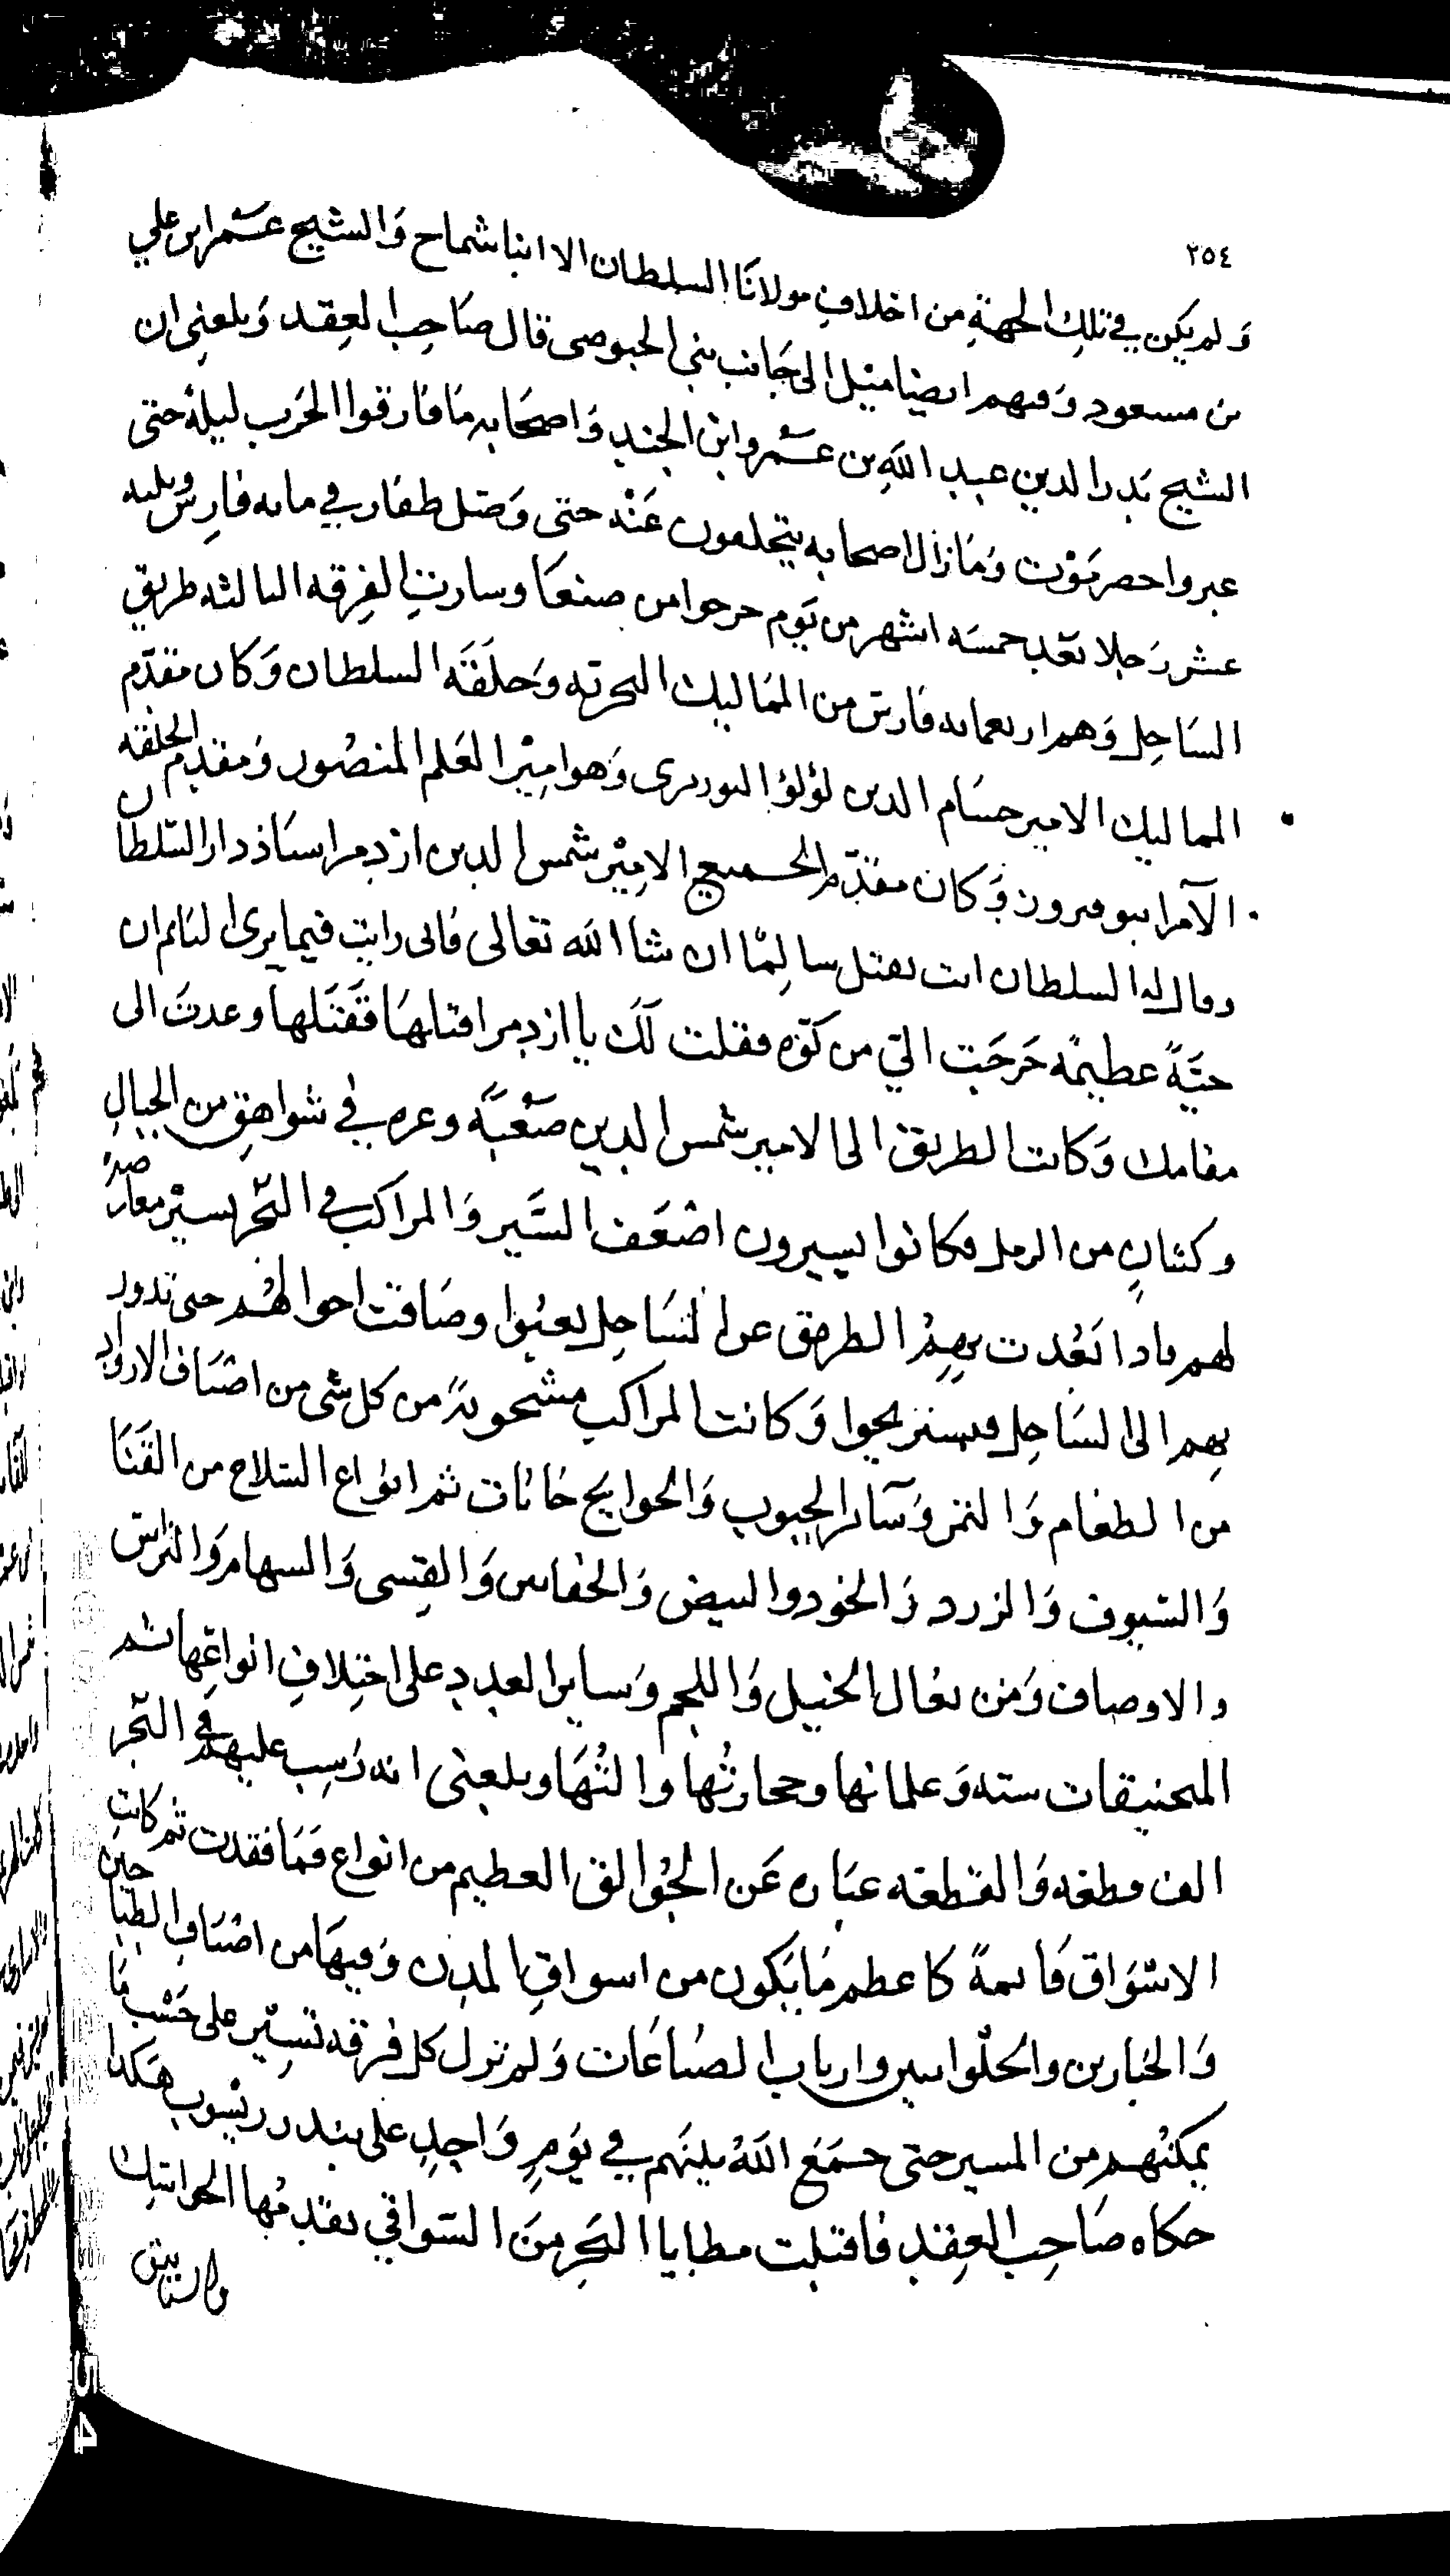 ٢٥٤
ولم يكن في تلك الجهة من اخلاف مولانا السلطان الا ابنا شماخ والشيخ عمر ابن علي
بن مسعود وفيهم ايضا ميل الى جانب بني الحبوضي قال صاحب العقد وبلغني ان
الشيخ بدر الدين عبد الله بن عمرو ابن الجند واصحابه ما فارقوا الحرب ليلة حتى
عبروا حضرموت وما زال اصحابه يتخلفون عنه حتى وصل ظفار في مايه فارس وثلثه
عشر رجلا بعد خمسه اشهر من يوم خرجوا من صنعا وسارت الفرقه الثالثه طريق
الساحل وهم اربعمايه فارس من المماليك البحريه وحلقه السلطان وكان مقدم
المماليك الامير حسام الدين لؤلؤ التوريزي وهو امير العلم المنصور ومقدم الحلقه
الامرا بنو فيروز وكان مقدم الجميع الامير شمس الدين ازدمر استاذ دار السلطان
وقال له السلطان انت تقتل سالما ان شا الله تعالى فاني رايت فيما يرى النايم ان
حية عظيمه خرجت الي من كوه فقلت لك يا ازدمر اقتلها فقتلها وعدت الى
مقامك وكانت الطريق الى الامير شمس الدين صعبة وعره في شواهق من الجبال
وكثبان من الرمل فكانوا يسيرون اضعف السير والمراكب في البحر تسير معارضة
لهم فاذا بعدت بهم الطريق عن الساحل تعبوا وضاقت احوالهم حتى تدور
بهم الى الساحل فيستريحوا وكانت المراكب مشحونة من كل شي من اصناف الازواد
من الطعام والتمر وساير الحبوب والحوايج خانات ثم انواع السلاح من القنا
والسيوف والزرد والخود والبيض والخفاتين والقسي والسهام والتراس
والاوصاف ومن نعال الخيل واللجم وساير العدد على اختلاف انواعها ثم
المنجنيقات سته وعلمانها وحجارتها والتها وبلغني انه رسب عليهم في البحر
الف قطعه والقطعه عباره عن الجوالق العظيم من انواع فما فقدت ثم كانت
الاسواق قايمة كاعظم ما يكون من اسواق المدن وفيها من اصناف الطباخين
والخبازين والحلوانيين وارباب الصناعات ولم تزل كل فرقه تسير على حسب ما
يمكنهم من المسير حتى جمع الله بينهم في يوم واحد على بندر ريسوب هكذا
حكاه صاحب العقد فاقبلت مطايا البحر من السواقي تقدمها الحرابتيك